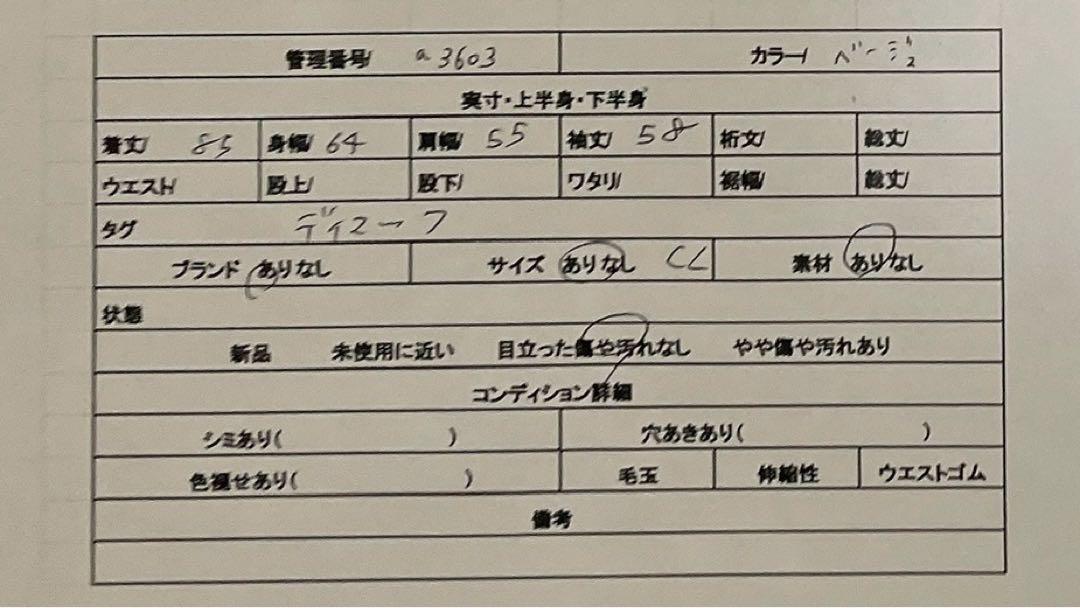 管理番号/ a3603 カラー/ ベージュ
実寸・上半身・下半身
着丈/ 85 身幅/ 64 肩幅/ 55 袖丈/ 58 裄丈/ 総丈/
ウエスト/ 股上/ 股下/ ワタリ/ 裾幅/ 総丈/
タグ
ブランド ありなし サイズ ありなし 素材 ありなし
状態
新品 未使用に近い 目立った傷や汚れなし やや傷や汚れあり
コンディション詳細
シミあり( ) 穴あきあり( )
色褪せあり( ) 毛玉 伸縮性 ウエストゴム
備考